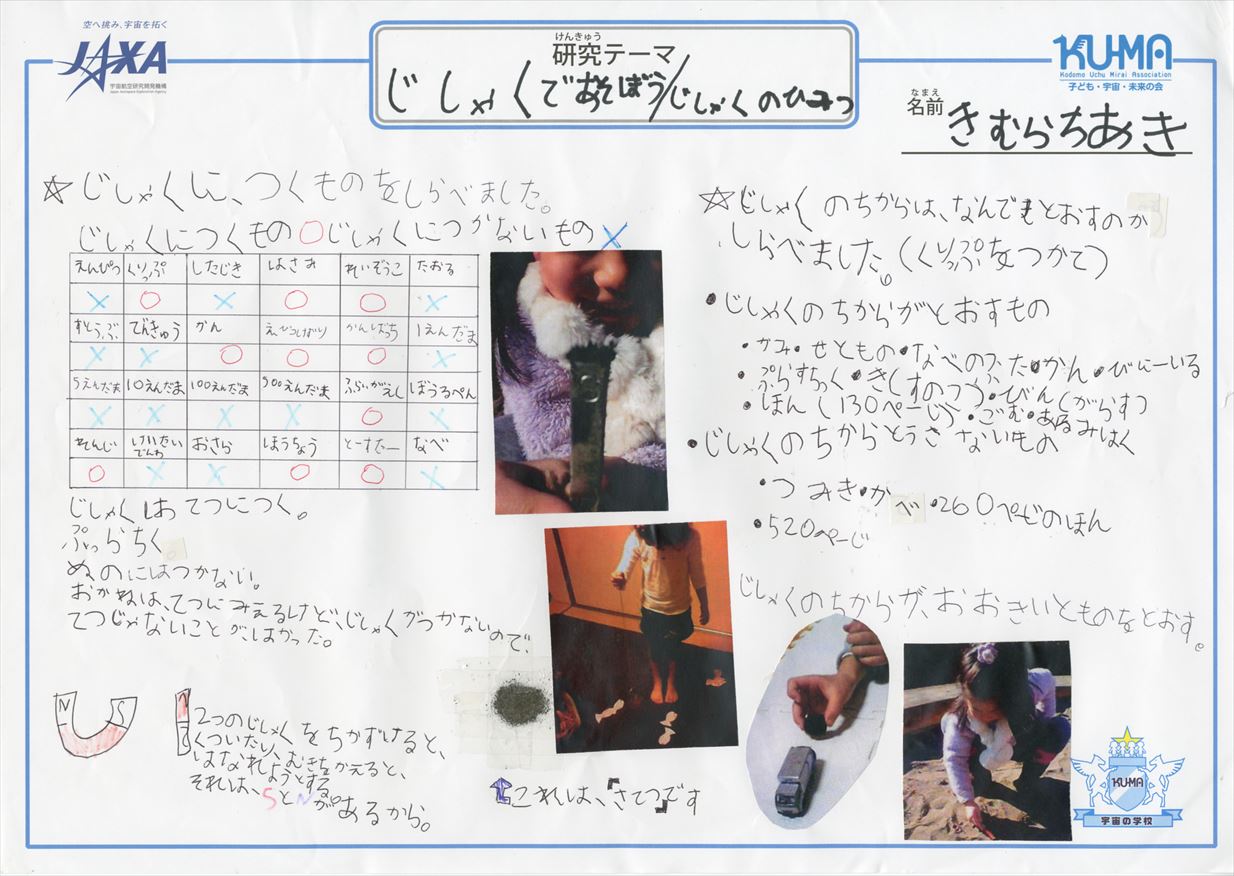 空へ挑み、宇宙を拓く
JAXA
宇宙航空研究開発機構
Japan Aerospace Exploration Agency
けんきゅう
研究テーマ
じしゃくであそぼう/じしゃくのひみつ
KU-MA
Kodomo Uchu Mirai Association
子ども・宇宙・未来の会
なまえ
名前 きむらちあき
☆じしゃくに、つくものをしらべました。
じしゃくにつくもの○じしゃくにつかないもの×
えんぴつ くりっぷ したじき はさみ れいぞうこ たおる
× ○ × ○ ○ ×
すとうぶ でんきゅう かん かんばっち 1えんだま
× × ○ ○ ○ ×
5えんだま 10えんだま 100えんだま 500えんだま ふらいがえし ぼうるぺん
× × × × ○ ×
れんじ けいたいでんわ おさら ほうちょう とーすたー なべ
○ × × ○ ○ ×
じしゃくはてつにつく。
ぷらっちく。
ぬのにはつかない。
おかねは、てつにみえるけど、じしゃくがつかないので、
てつじゃないことがはかった。
N S
N
S
2つのじしゃくをちかずけると、
くついたり、
はなれたようとする
むきをかえると、
それは、SとNがあるから。
⇧これは、「さてつ」です
☆じしゃくのちからは、なんでもとおすのか
しらべました。(くりっぷをつかて)
●じしゃくのちからがとおすもの
・かみ・せともの・なべのふた・かん・びにーいる
・ぷらすちっく・きくすのつつ・びん(がらす)
・ほん(130ぺーじ)・ごむ・あるみはく
●じしゃくのちからとうさないもの
・つみき・かべ・260ぺーじのほん
・520ぺーじ
じしゃくのちからが、おおきいとものをとおす。
KUMA
宇宙の学校